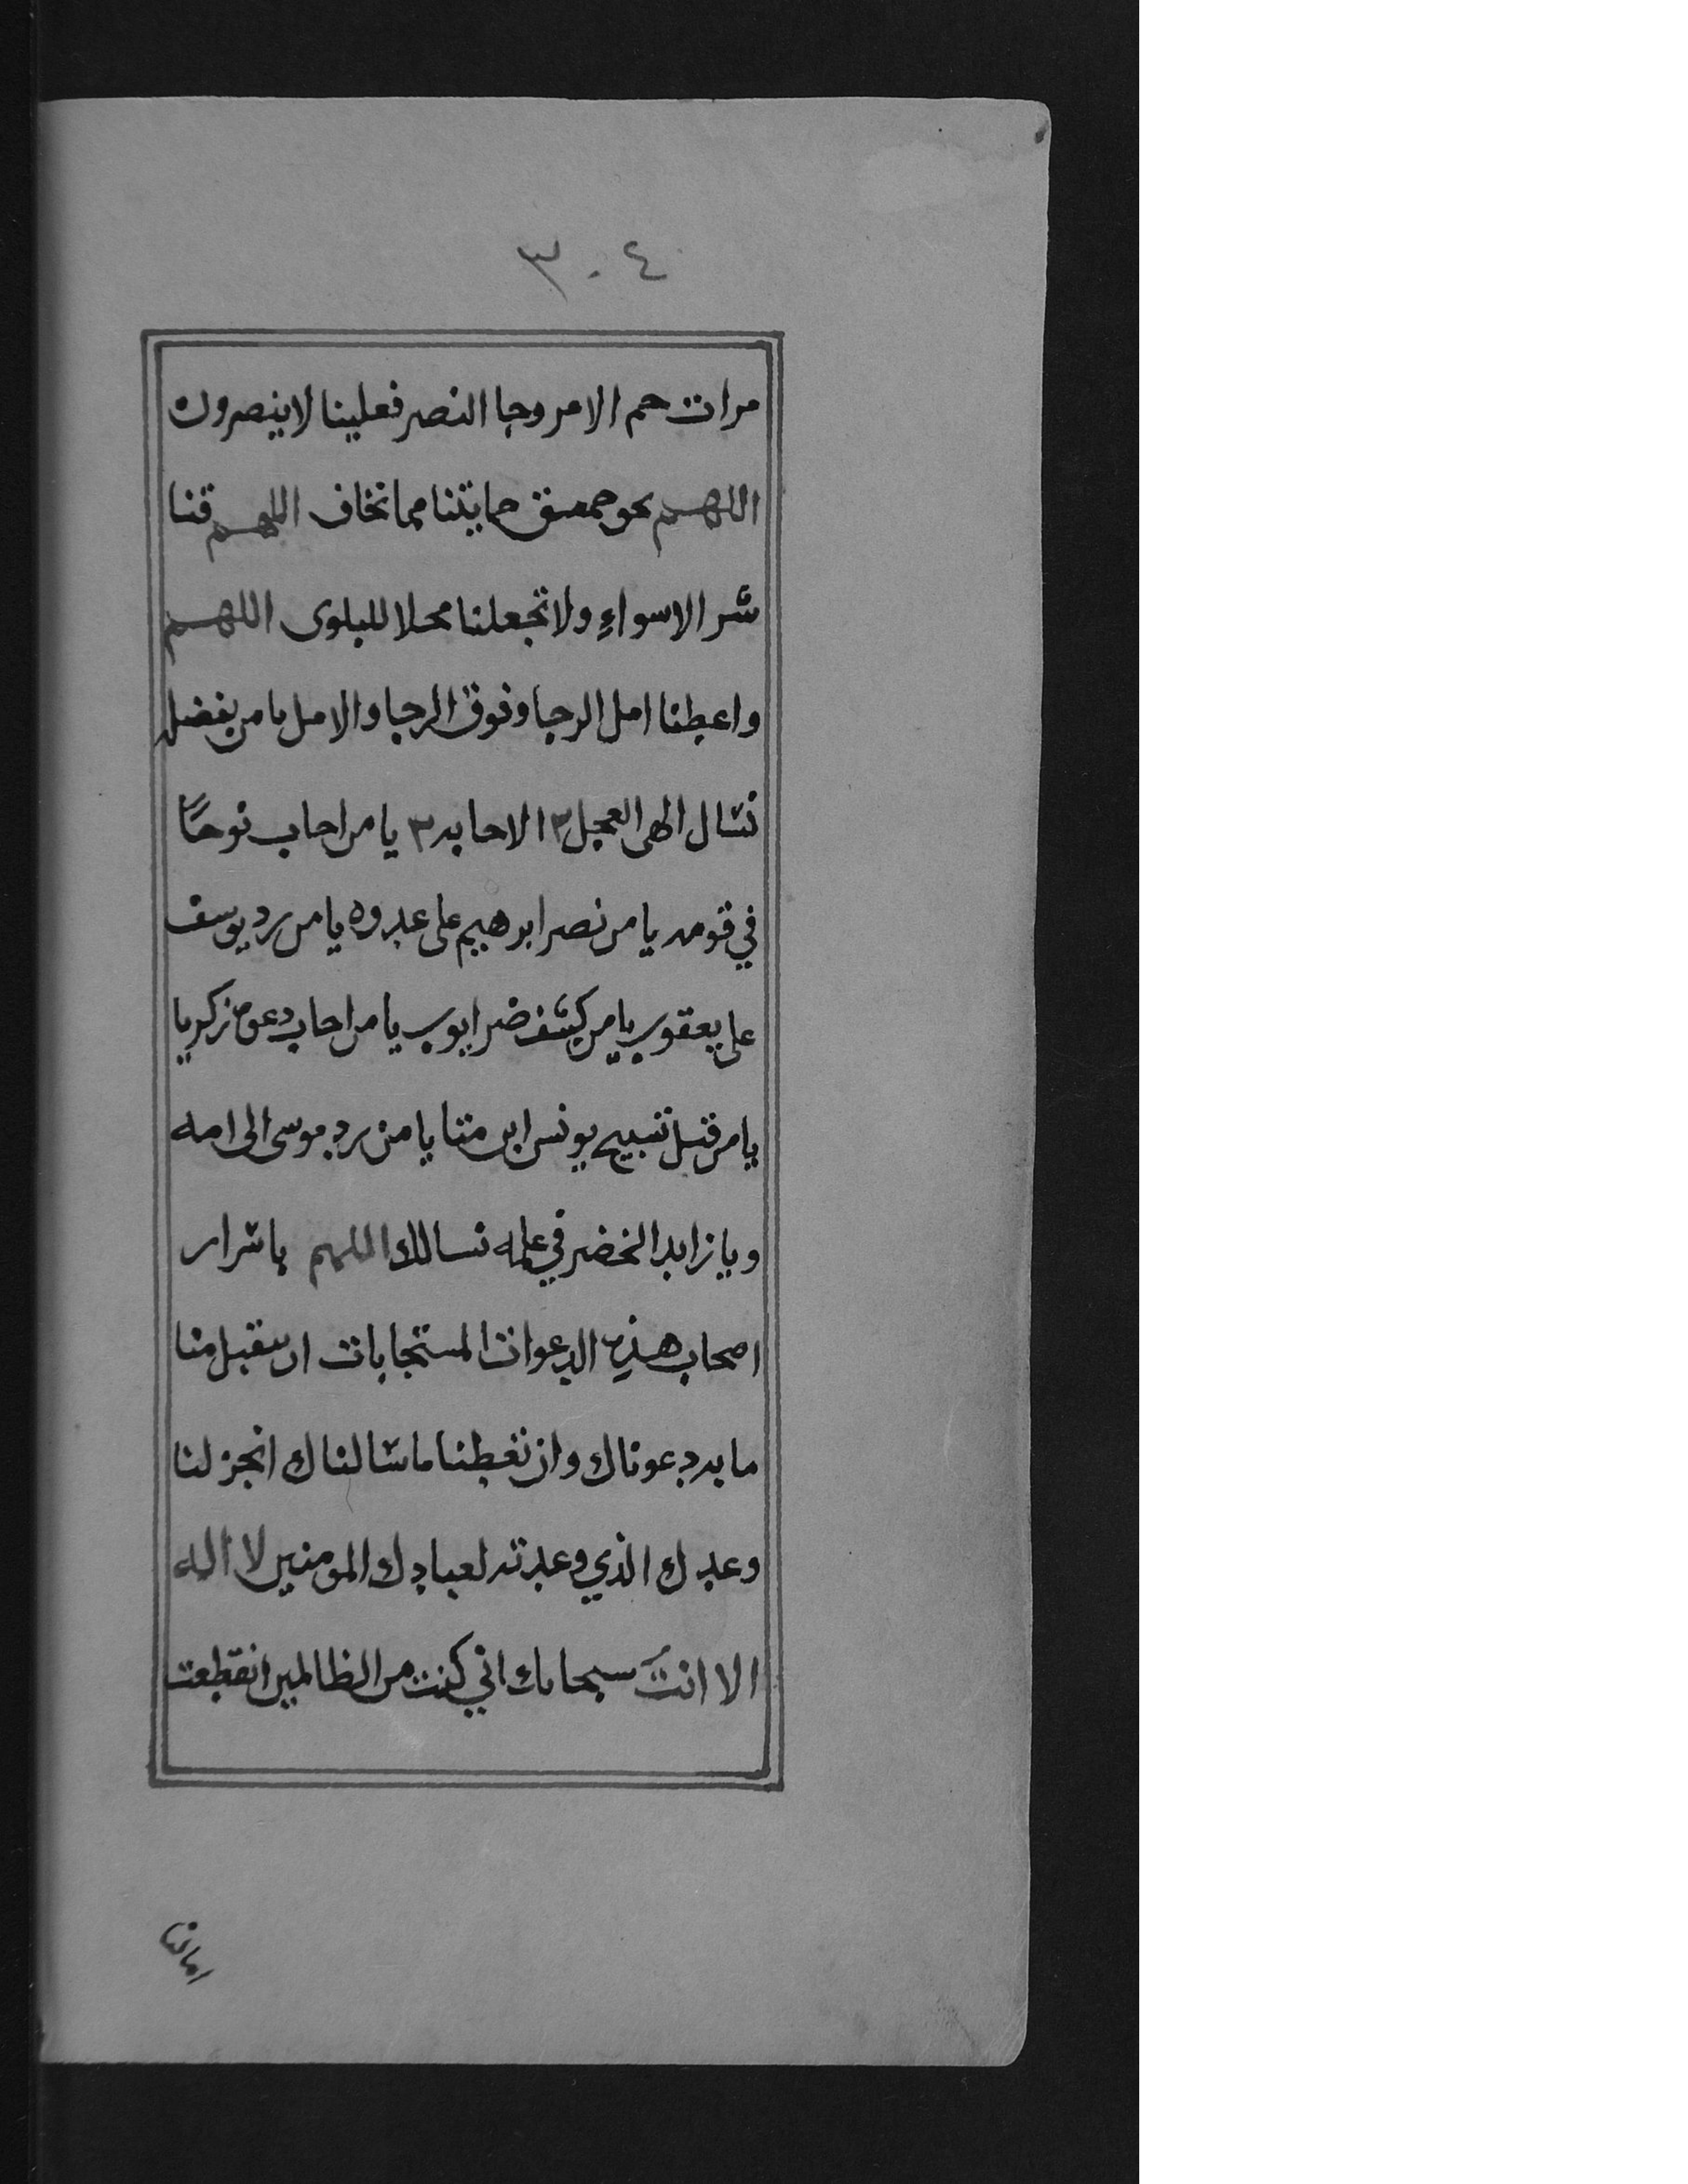 ٣٠٤
مرات حم الامر وجا النصر فعلينا لاينصرون
اللهم بحق حمعسق حمايتنا مما نخاف اللهم قنا
شر الاسواء ولا تجعلنا محلا للبلوى اللهم
واعطنا امل الرجا وفوق الرجا والامل يا من بفضله
نسال الهى العجل ٣ الاجابه ٣ يا من اجاب نوحًا
في قومه يا من نصر ابرهيم على عدوه يا من رد يوسف
على يعقوب يا من كشف ضر ايوب يا من اجاب دعوة زكريا
يا من قبل تسبيح يونس ابن متا يا من رد موسى الى امه
ويا زايد الخضر في علمه نسالك اللهم باسرار
اصحاب هذه الدعوات المستجابات ان تتقبل منا
ما به دعوناك وان تعطنا ما سالناك انجز لنا
وعدك الذي وعدته لعبادك المومنين لا اله
الا انتَ سبحانك اني كنت من الظالمين انقطعت
امالنا